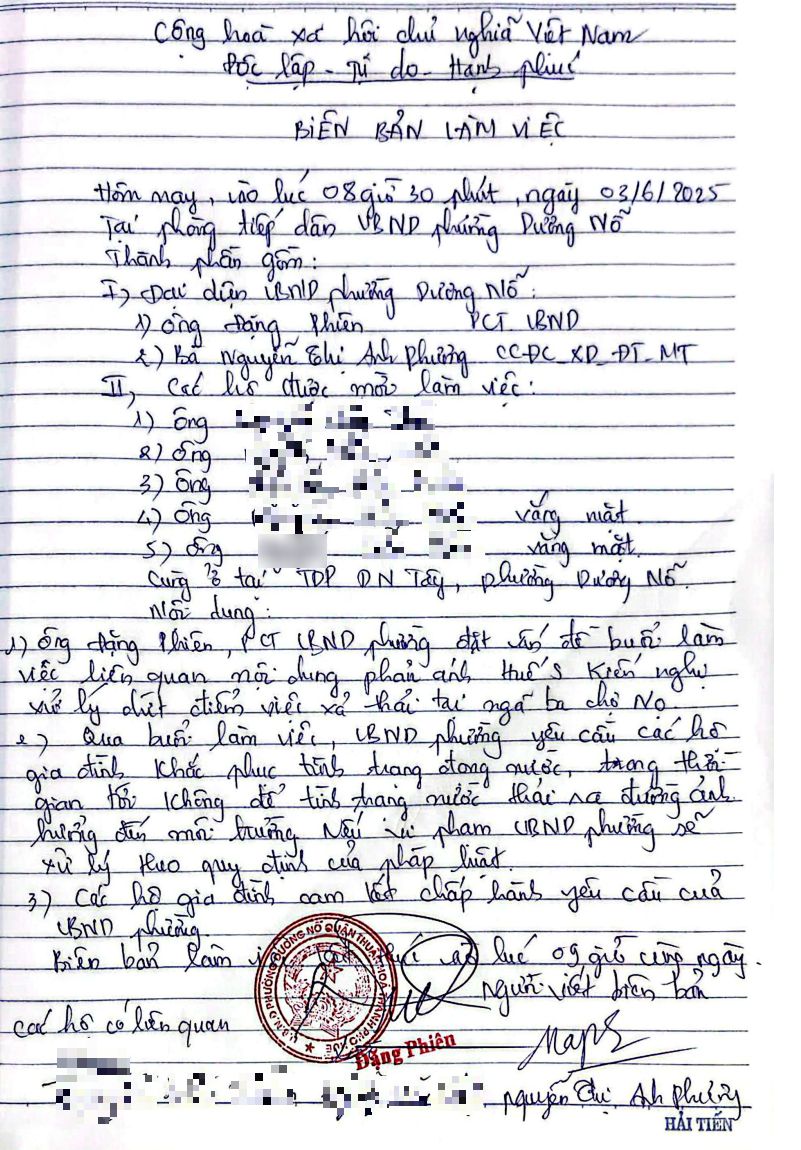 Công hoà xã hội chủ nghĩa Việt Nam
Độc lập - Tự do - Hạnh phúc
BIÊN BẢN LÀM VIỆC
Hôm nay, vào lúc 08 giờ 30 phút, ngày 03/6/2025
Tại phòng tiếp dân UBND phường Dương Nỗ
Thành phần gồm:
I) Đại diện UBND phường Dương Nỗ:
1) Ông Đặng Phiên PCT UBND
2) Bà Nguyễn Thị Anh Phương CC ĐC_XD_ĐT_MT
II, Các hộ được mời làm việc:
1) Ông
2) Ông
3) Ông
4) Ông vắng mặt.
5) Ông vắng mặt.
Cùng ở tại TDP DN Tây, phường Dương Nỗ.
Nội dung:
1) Ông Đặng Phiên, PCT UBND phường đặt vấn đề buổi làm
việc liên quan nội dung phản ánh Huế S Kiến nghị
xử lý dứt điểm việc xả thải tại ngã ba chợ Nọ
2) Qua buổi làm việc, UBND phường yêu cầu các hộ
gia đình khắc phục tình trạng đọng nước, trong thời
gian tới không để tình trạng nước thải ra đường ảnh
hưởng đến môi trường Nếu vi phạm UBND phường sẽ
xử lý theo quy định của pháp luật.
3) Các hộ gia đình cam kết chấp hành yêu cầu của
UBND phường.
Biên bản làm lúc 09 giờ cùng ngày.
Người viết biên bản
Các hộ có liên quan
U.B.N.D PHƯỜNG DƯƠNG NỖ QUẬN THUẬN HOÁ THÀNH PHỐ HUẾ
Đặng Phiên
Nguyễn Thị Anh Phương
HẢI TIẾN